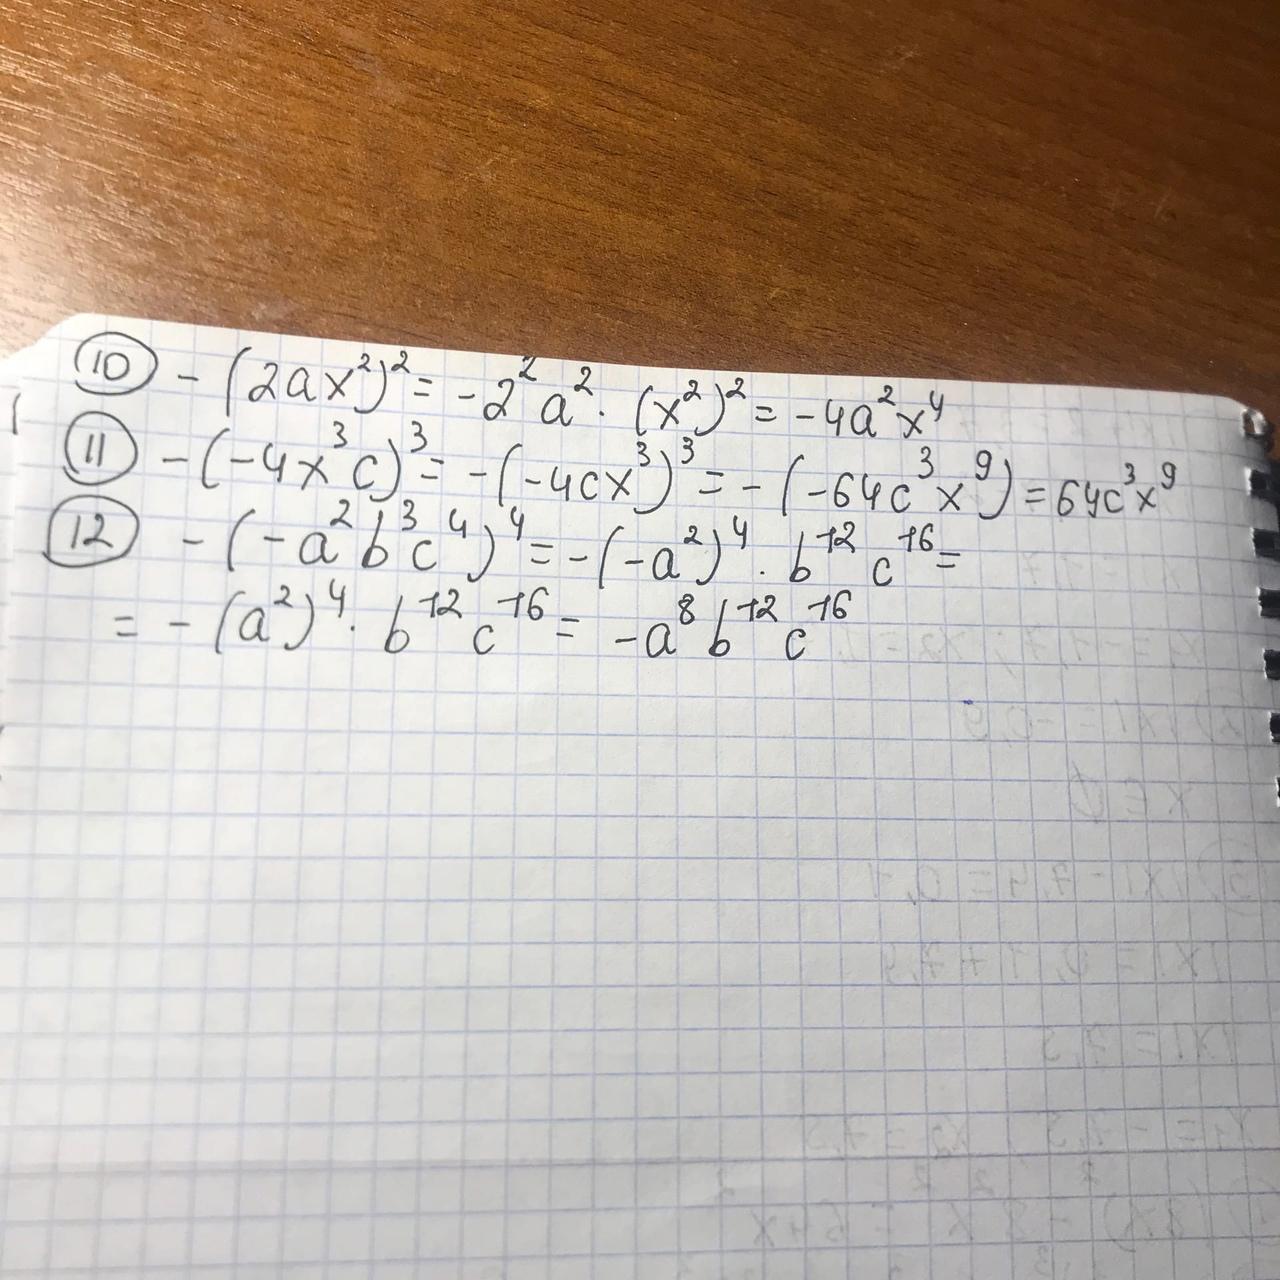 10 - (2ax²)² = -2²a² · (x²)² = -4a²x⁴
11 - (-4x³c)³ = -(-4cx³)³ = -(-64c³x⁹) = 64c³x⁹
12 - (-a²b³c⁴)⁴ = -(-a²)⁴ · b¹²c¹⁶ =
= -(a²)⁴ · b¹²c¹⁶ = -a⁸b¹²c¹⁶